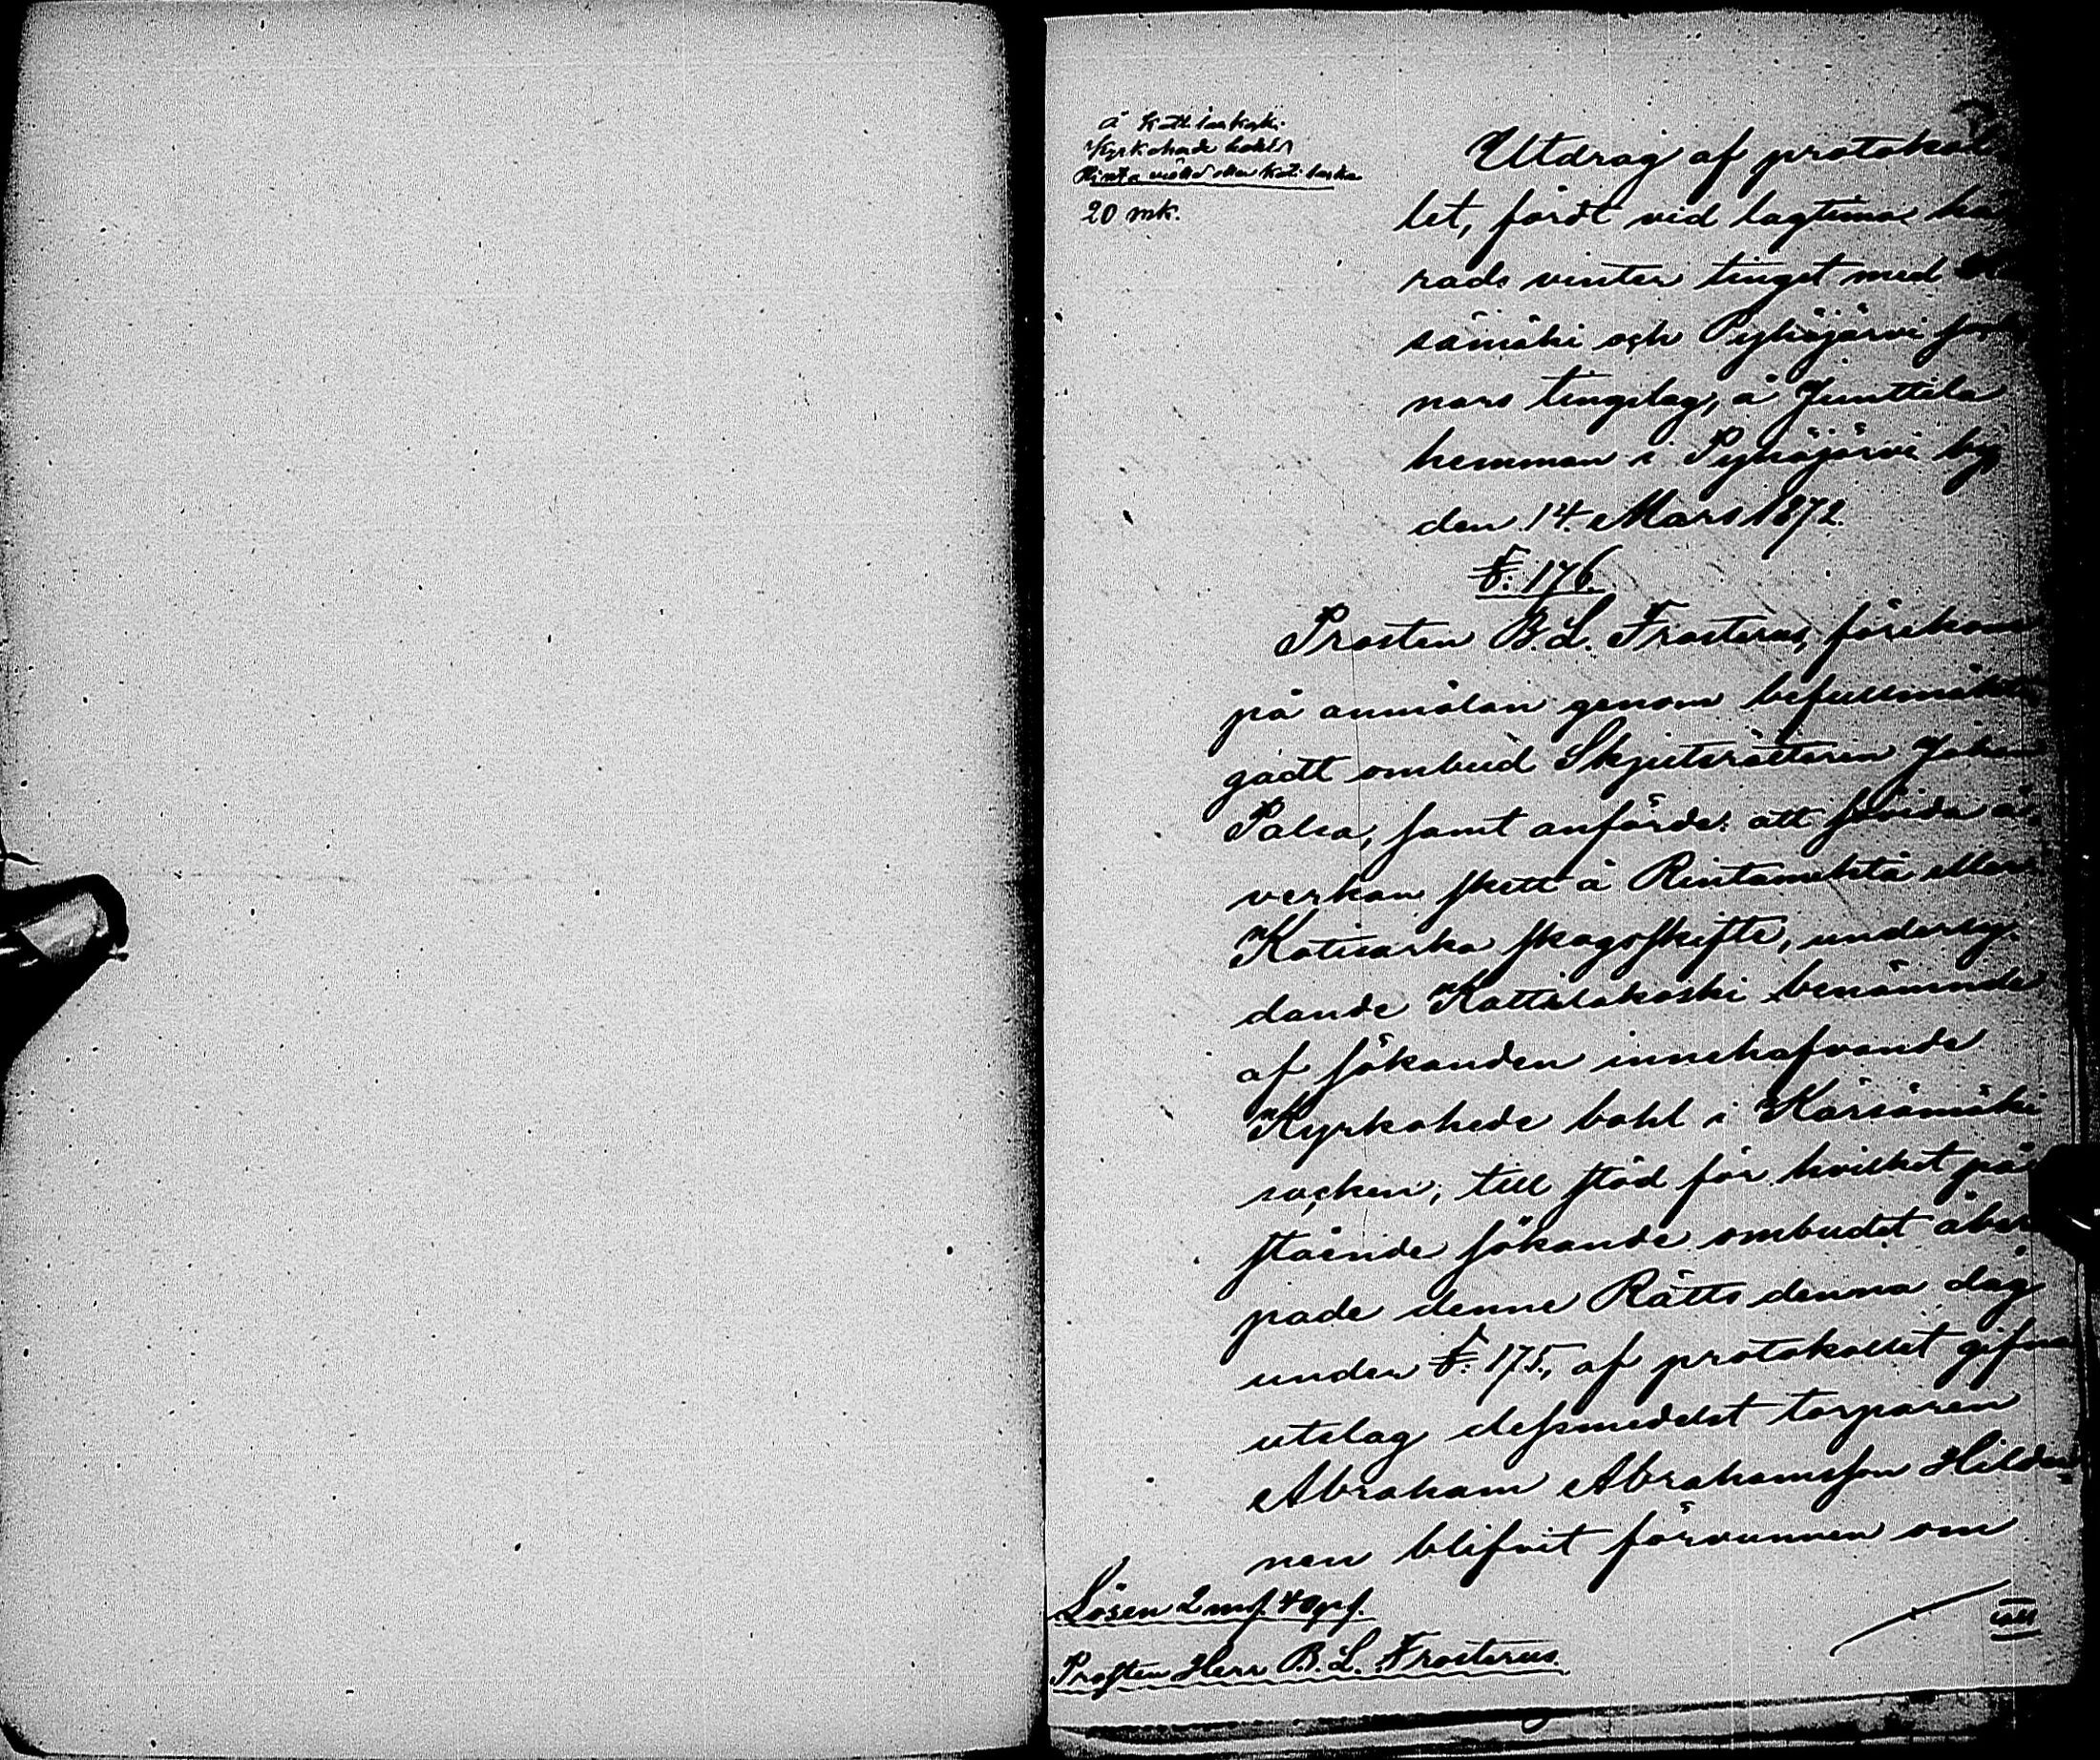 å Kattilakoski
Kyrkoherde bohl
Rintamukta eller Kotisarka
20 mk.
Utdrag af protokol
let, fördt vid lagtima hä
rads vinter tinget med Kär
sämäki och Pyhäjärvi sock
nars tingslag, å Junttila
hemman i Pyhäjärvi by
den 14 Mars 1872.
§. 176.
Prosten B. L. Frosterus, förekom
på anmälan genom befullmäkti
gadt ombud Skjutsrättaren Johan
Palsa, samt anförde: att svida å-
verkan skett å Rintamukta eller
Kotisarka skogsskifte, underly-
dande Kattilakoski benämnde
af sökanden innehafvande
Kyrkoherde bohl i Kärsämäki
socken; till stöd för hvilket på
stående sökande ombudet åbero
pade denne Rätts denna dag
under §. 175, af protokollet gifna
utslag dessmedelst torparen
Abraham Abrahamsson Hildu-
nen blifvit förvunnen om
Lösen 2 mf. 40 pf.
Prosten Herr B. L. Frosterus.